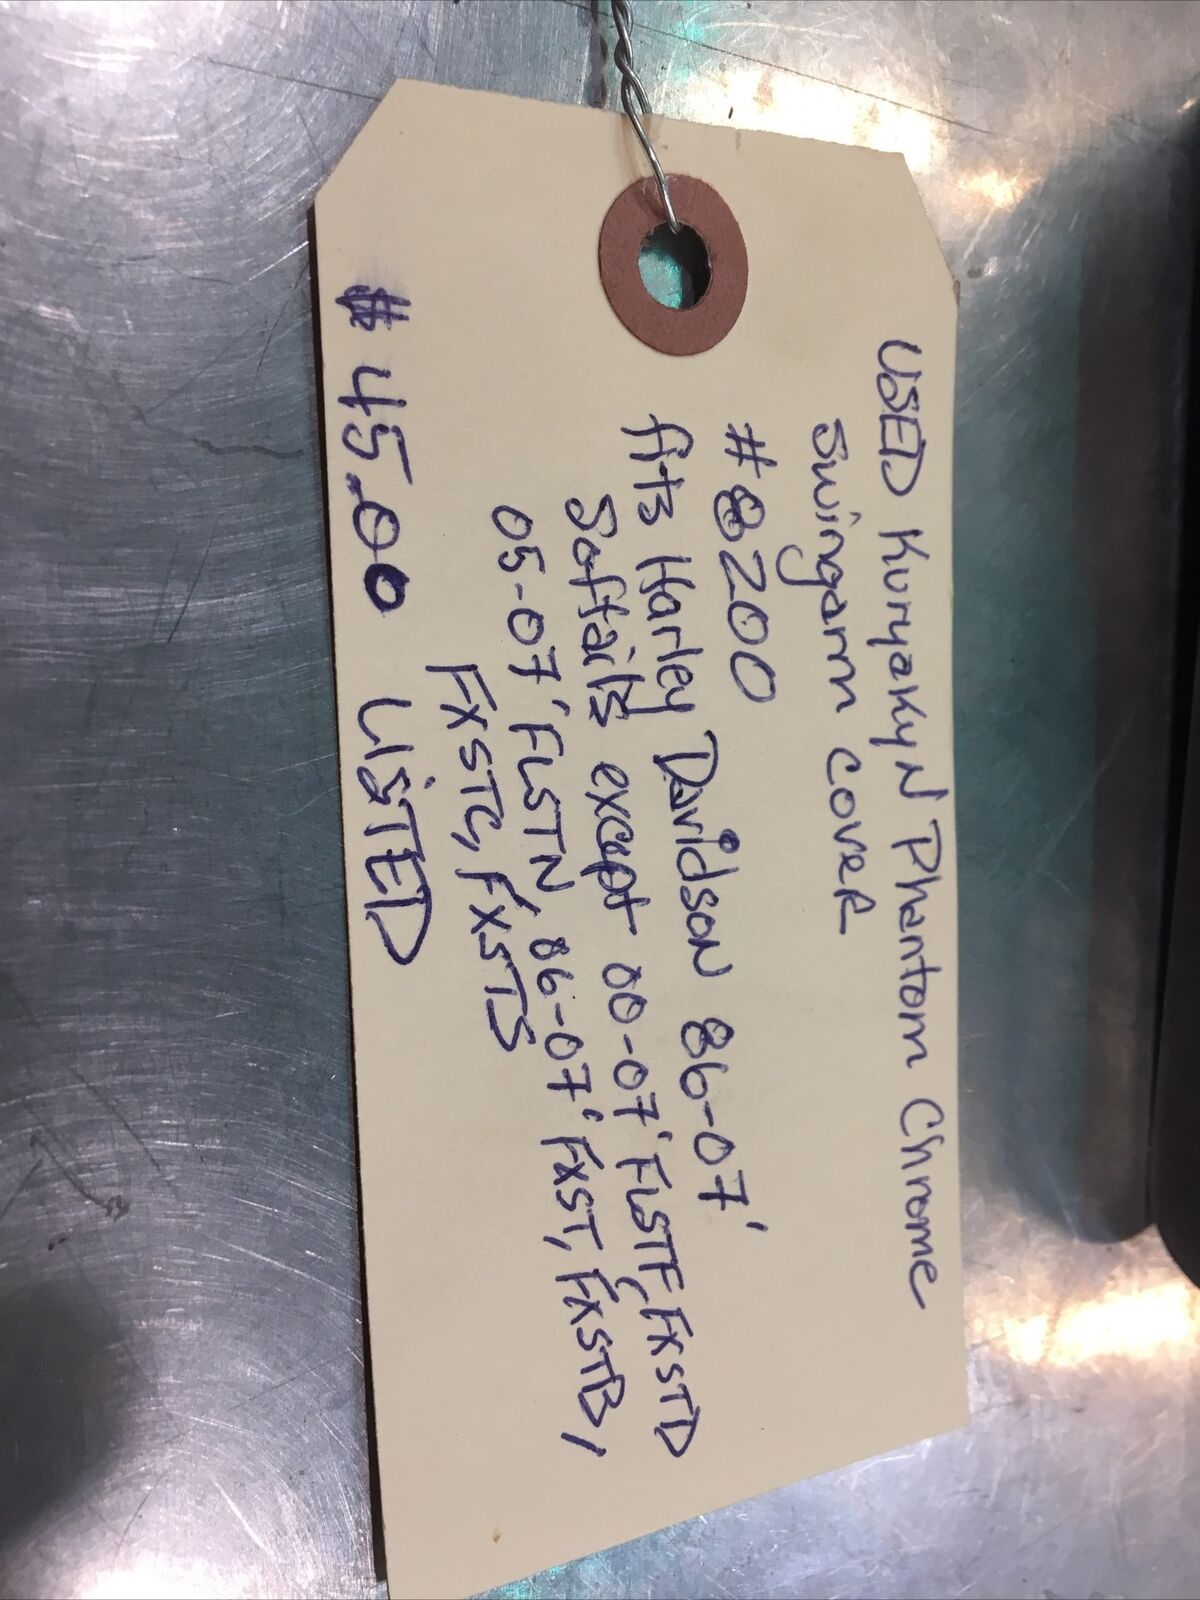 USED Kuryakyn Phantom Chrome
Swingarm cover
#8200
fits Harley Davidson 86-07'
Softails except 00-07' FLSTF, FXSTD
05-07' FLSTN, 86-07' FXST, FXSTB,
FXSTC, FXSTS
$45.00 LISTED